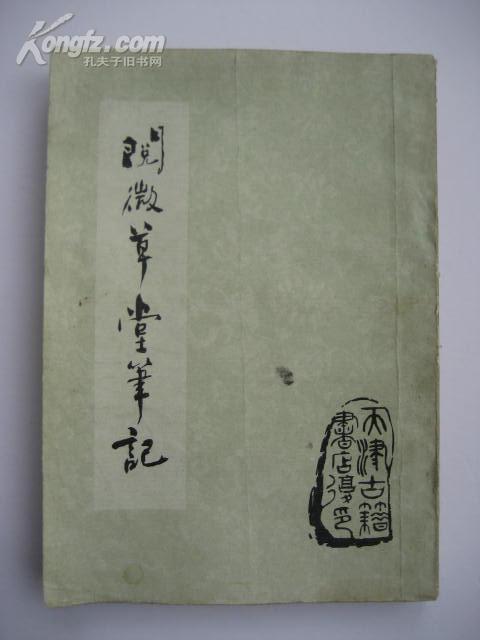 Kongfz.com
孔夫子旧书网
閱微草堂筆記
天津古籍
書店復印